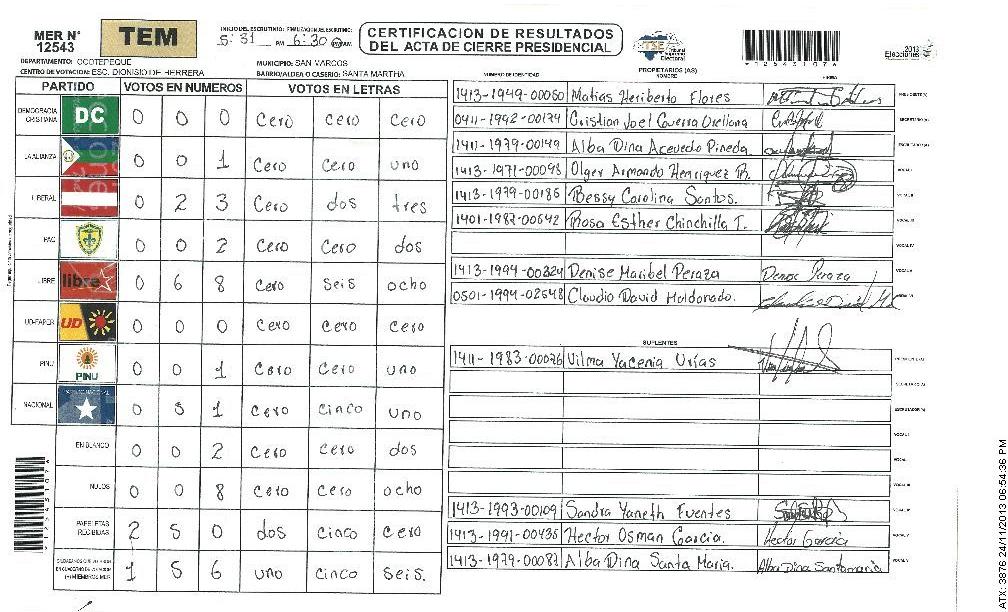 MER N° 12543
TEM
INICIO DEL ESCRUTINIO: FINALIZACION ESCRUTINIO:
5:31 PM 6:30 AM
CERTIFICACION DE RESULTADOS
DEL ACTA DE CIERRE PRESIDENCIAL
TSE Tribunal Supremo Electoral
2013 Elecciones
DEPARTAMENTO: OCOTEPEQUE
MUNICIPIO: SAN MARCOS
CENTRO DE VOTACION: ESC. DIONISIO DE HERRERA
BARRIO/ALDEA O CASERIO: SANTA MARTHA
PROPIETARIOS (AS)
NUMERO DE IDENTIDAD NOMBRE FIRMA
PARTIDO VOTOS EN NUMEROS VOTOS EN LETRAS
DEMOCRACIA CRISTIANA DC 0 0 0 Cero Cero Cero
LA ALIANZA 0 0 1 Cero Cero uno
LIBERAL 0 2 3 Cero dos tres
PAC 0 0 2 Cero Cero dos
LIBRE libre 0 6 8 Cero Seis ocho
UD-FAPER UD 0 0 0 Cero Cero Cero
PINU PINU 0 0 1 Cero Cero uno
NACIONAL 0 5 1 Cero Cinco uno
EN BLANCO 0 0 2 Cero Cero dos
NULOS 0 0 8 Cero Cero ocho
PAPELETAS RECIBIDAS 2 5 0 dos Cinco Cero
1 5 6 uno cinco Seis.
1413-1949-00050 Matias Heriberto Flores PRESIDENTE(A)
0411-1992-00174 Cristian Joel Guerra Orellana SECRETARIO (A)
1411-1979-00149 Alba Dina Acevedo Pineda ESCRUTADOR (A)
1413-1971-00098 Olger Armando Henriquez B. VOCAL I
1413-1979-00186 Bessy Carolina Santos. VOCAL II
1401-1987-00642 Rosa Esther Chinchilla T. VOCAL III
VOCAL IV
1413-1994-00324 Denise Maribel Peraza Denise Peraza VOCAL V
0501-1994-02648 Claudio David Maldonado. VOCAL VI
SUPLENTES
1411-1983-00076 Vilma Yacenia Urias PRESIDENTE(A)
SECRETARIO(A)
ESCRUTADOR(A)
VOCAL I
VOCAL II
VOCAL III
1413-1993-00109 Sandra Yaneth Fuentes VOCAL IV
1413-1991-00435 Hector Osman Garcia. Hector Garcia VOCAL V
1413-1979-00087 Alba Dina Santa Maria. Alba Dina Santamaria VOCAL VI
ATX: 3976 24/11/2013 06:54:36 PM